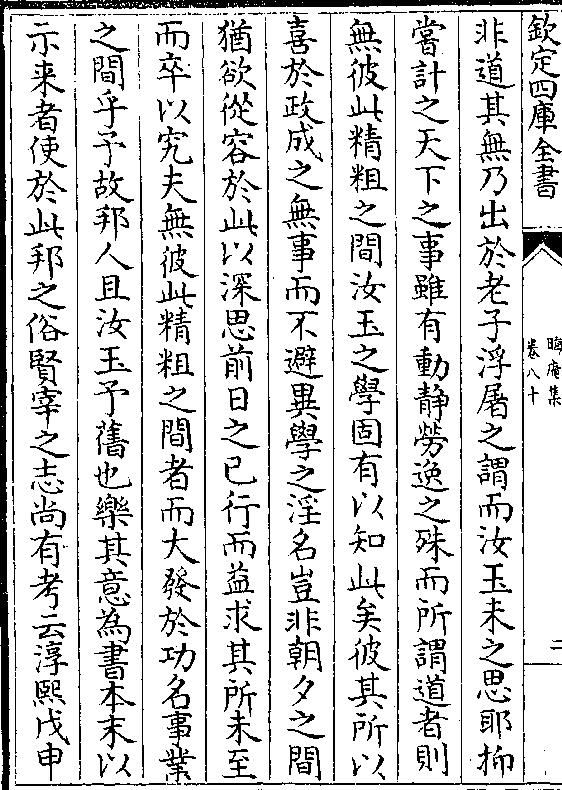 欽定四庫全書
晦庵集
卷八十
二
非道其無乃出於老子浮屠之謂而汝玉未之思耶抑
嘗計之天下之事雖有動靜勞逸之殊而所謂道者則
無彼此精粗之間汝玉之學固有以知此矣彼其所以
喜於政成之無事而不避異學之淫名豈非朝夕之間
猶欲從容於此以深思前日之已行而益求其所未至
而卒以究夫無彼此精粗之間者而大發於功名事業
之間乎予故邦人且汝玉予舊也樂其意為書本末以
示来者使於此邦之俗賢宰之志尚有考云淳熙戊申